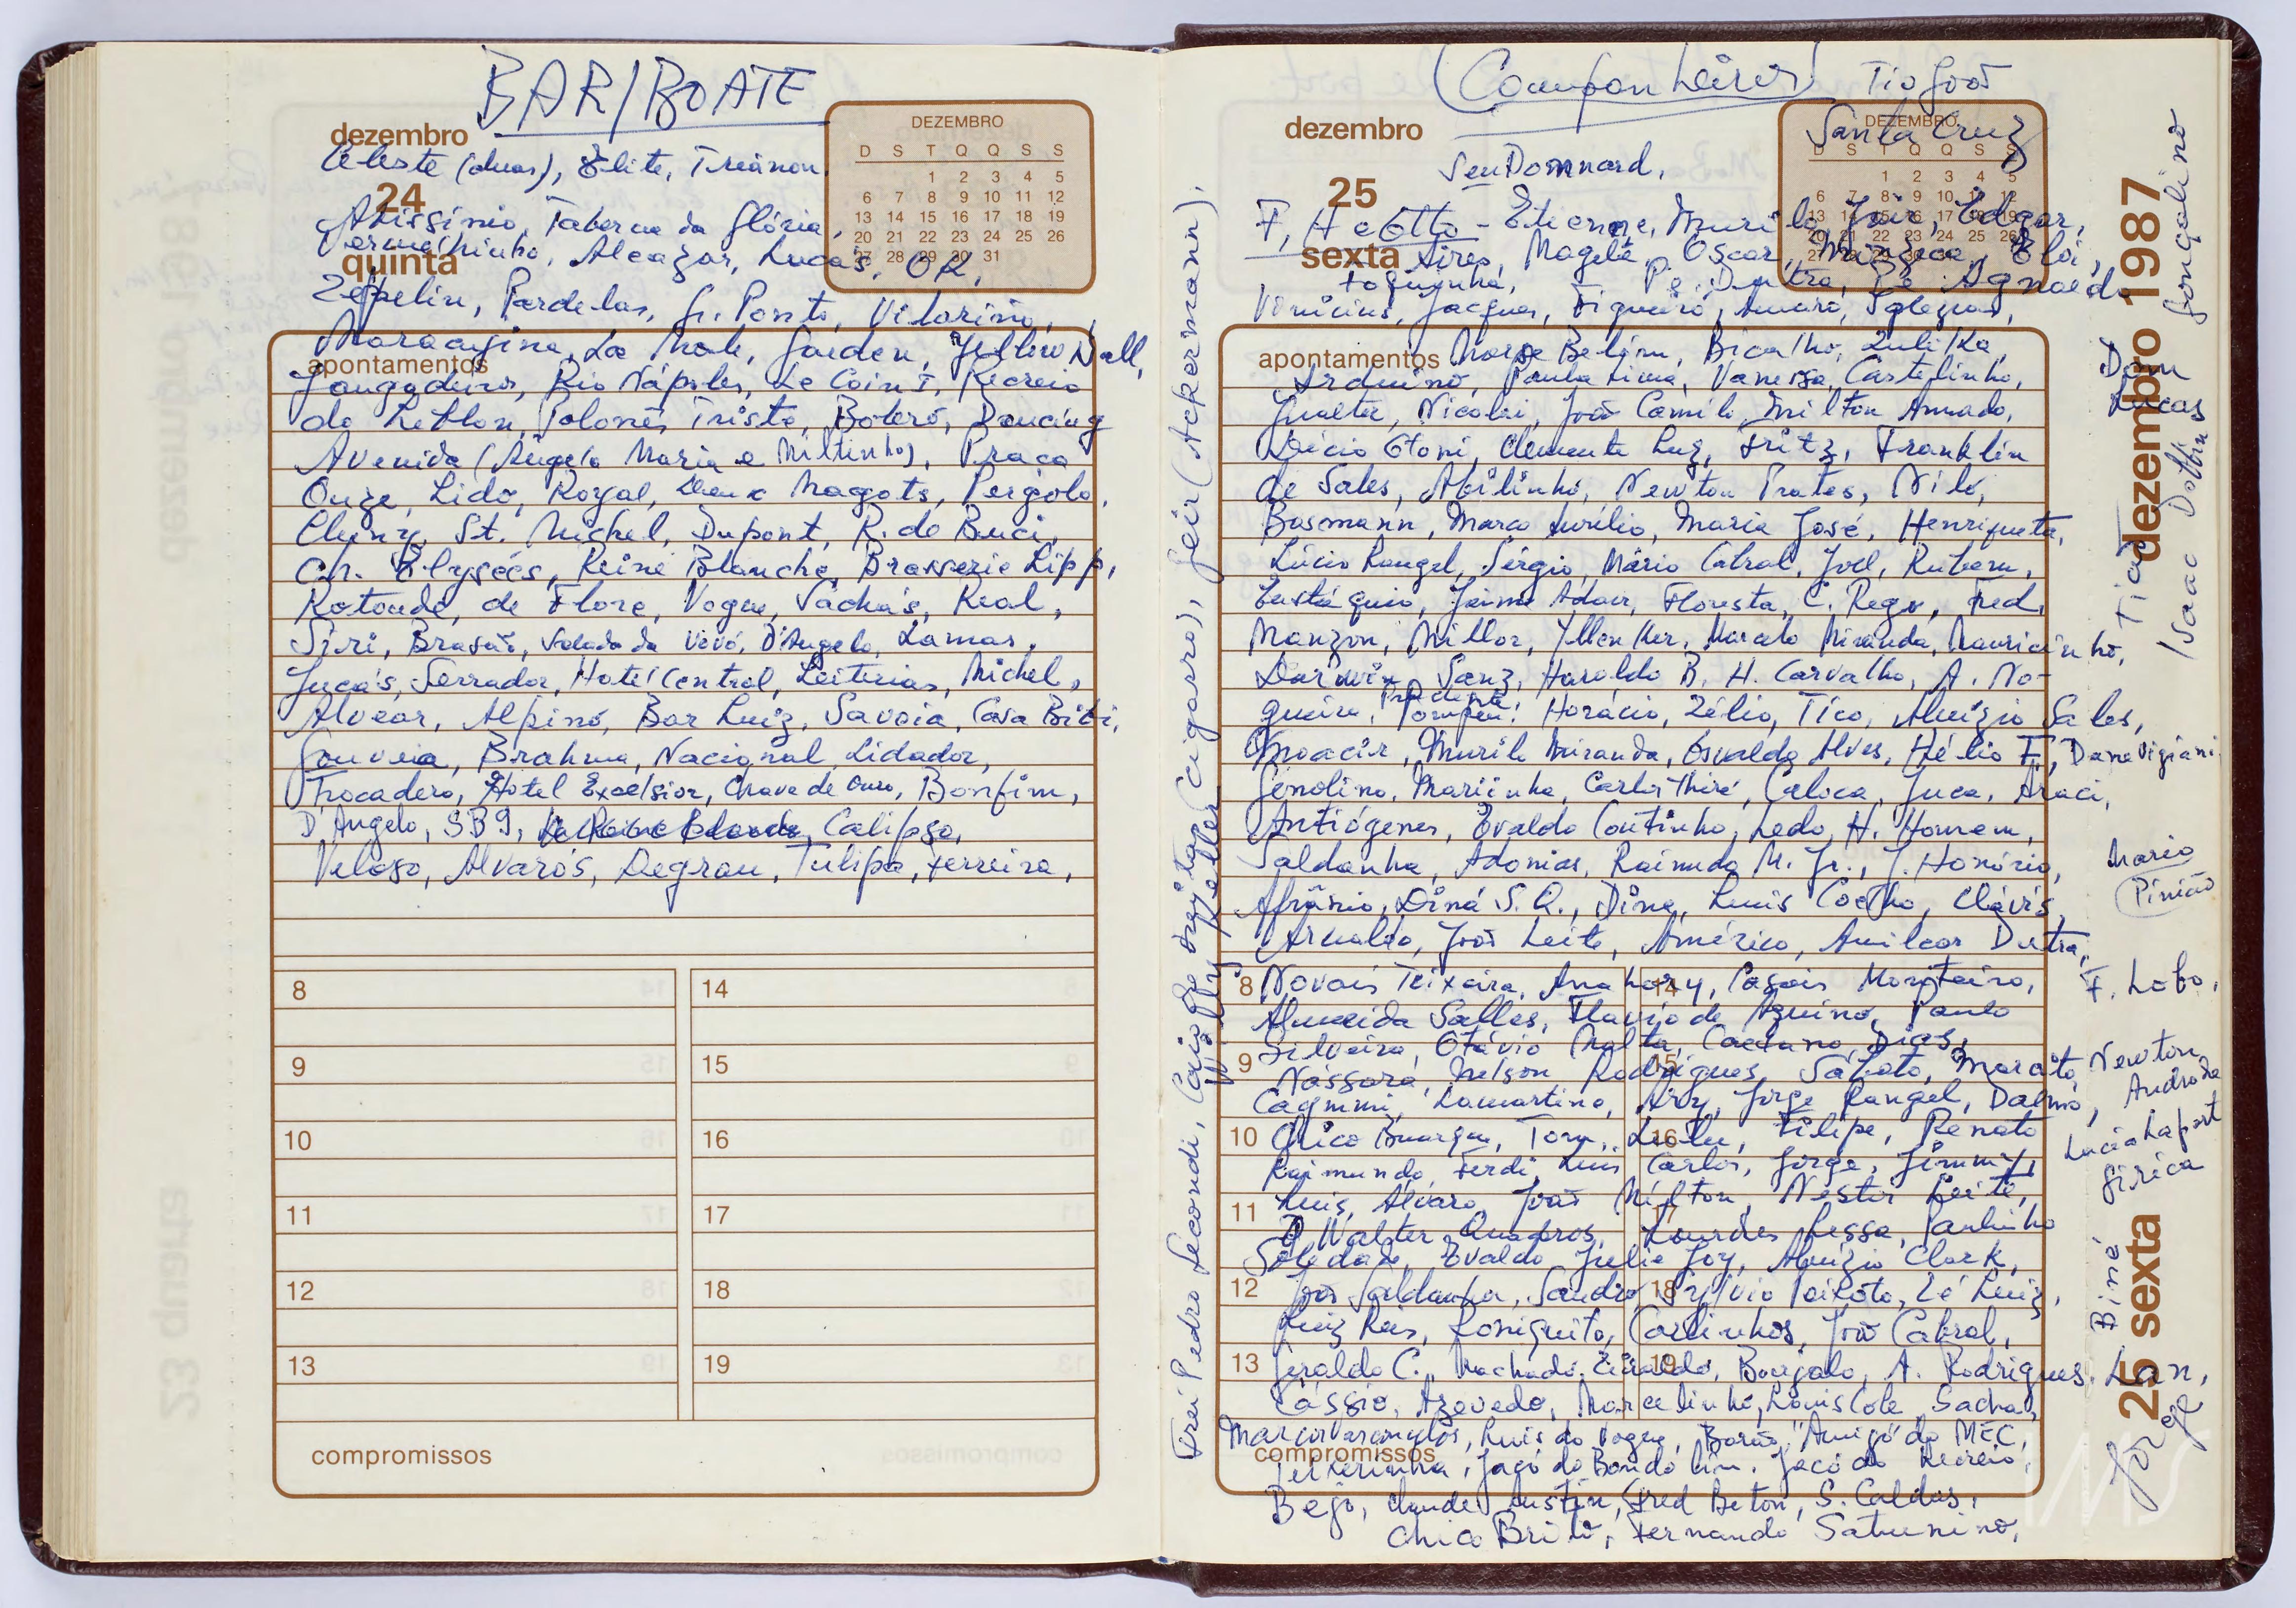 BAR/BOATE
dezembro
24
quinta
DEZEMBRO
D S T Q Q S S
1 2 3 4 5
6 7 8 9 10 11 12
13 14 15 16 17 18 19
20 21 22 23 24 25 26
27 28 29 30 31
Celeste (duas), Elite, Trianon,
Abissínio, Taberna da Glória,
Vermelhinho, Alcazar, Lucas, OK,
Zeppelin, Pardelas, G. Ponto, Vilarino,
apontamentos
La Mole, Garden,
Rio Nápoles, Le Coin, Recreio
do Leblon, Polonês, Triste, Bolero, Dancing
Avenida (Ângela Maria e Miltinho), Praça
Onze, Lido, Royal, Deux Magots, Pergola,
Cluny, St. Michel, Dupont, R. de Buci,
Ch. Elysées, Reine Blanche, Brasserie Lipp,
Rotonde, de Flore, Vogue, Sacha's, Real,
Siri, Brasão, Salada da Vovó, D'Angelo, Lamas,
Juca's, Serrador, Hotel Central, Leiterias, Michel,
Alvear, Alpino, Bar Luiz, Savoia, Casa Bibi,
Gouveia, Brahma, Nacional, Lidador,
Trocadero, Hotel Excelsior, Chave de Ouro, Bonfim,
D'Angelo, SB9, Calipso,
Veloso, Alvaro's, Degrau, Tulipa, Ferreira,
8 14
9 15
10 16
11 17
12 18
13 19
compromissos
(Companheiros) Tio João
Santa Cruz
dezembro
25
sexta
DEZEMBRO
D S T Q Q S S
1 2 3 4 5
6 7 8 9 10 11 12
13 14 15 16 17 18 19
20 21 22 23 24 25 26
Seu Domnard,
Otto - Etienne, Murilo, Jair, Edgar,
Aires, Magela, Oscar, Eloi,
Foguinho, Pe. Dutra, Pe. Agnaldo
Vinicius, Jacques, Figueiró, Amaro, Iglezias,
apontamentos
Bicalho, Zulilka,
Arduino, Paula Lima, Vanessa, Castelinho,
Gualter, Nicolai, João Camilo, Milton Amado,
Décio Otoni, Clemente Luz, Fritz, Franklin
de Sales, Abilinho, Newton Prates, Nilo,
Bosmann, Marco Aurélio, Maria José, Henriqueta,
Lúcio Rangel, Sérgio, Mário Cabral, Joel, Rubem,
Eustáquio, Jaime Adour, Floresta, C. Rego, Fred,
Manzon, Millor, Yllen Ker, Marcelo Miranda, Mauricinho,
Darwin, Sanz, Haroldo B. H. Carvalho, A. No-
gueira, Pompeu, Horácio, Zélio, Tico, Aluízio Sales,
Moacir, Murilo Miranda, Osvaldo Alves, Hélio F., Dane Vigiani
Genolino, Mariinha, Carlos Thiré, Carioca, Juca, Araci,
Antiógenes, Evaldo Coutinho, Ledo, H. Homem,
Saldanha, Adonias, Raimundo M. Jr., J. Honório,
Afrânio, Diná S. Q., Dina, Luis Coelho, Clóvis,
Arnaldo, João Leite, Américo, Amilcar Dutra,
8 Novais Teixeira, Ana Mary, Casais Monteiro,
14
Almeida Salles, Flavio de Aquino, Paulo
Silveira, Otávio Malta, Caetano Dias,
9 Nássara, Nelson Rodrigues, Sábato,
15
Caymmi, Lamartine, Ary, Jorge Rangel, Dalmo,
10 Chico Buarque, Tom, Lulu, Filipe, Renato
16
Raimundo, Ferdi, Luis Carlos, Jorge, Jimmy,
11 Luis, Álvaro, João Milton, Nestor Leite,
17
Walter Quadros, Lourdes Lessa, Paulinho
Soledade, Evaldo, Julie Joy, Aluízio Clark,
12 João Saldanha, Sandro, Silvio Peixoto, Zé Luiz,
18
Luiz Reis, Roniquito, Carlinhos, João Cabral,
13 Geraldo C., Machado, Ziraldo, Borjalo, A. Rodrigues, Lan,
19
Cássio, Azevedo, Marcelinho, Louis Cole, Sacha,
Marcos Vasconcelos, Luis do Vogue, Barão, "Amigo" do MEC,
compromissos
Teixeirinha, Jacó do Bandolim, Jacó do Recreio,
Bejo, Claude Austin, Fred Beton, S. Caldas,
Chico Brito, Fernando Saturnino,
Frei Pedro Secondi, Caio (de Freitas), Geir (Ackermann),
Wally Keller
dezembro 1987
25 sexta
Gongolino
Dom
Lucas
Tião
Isaac
Mario
Pinião
F. Lobo,
Newton
Andrade
Lucia Laport
Girica
Biné
Jorge
dezembro 1987
23 quarta
IMS